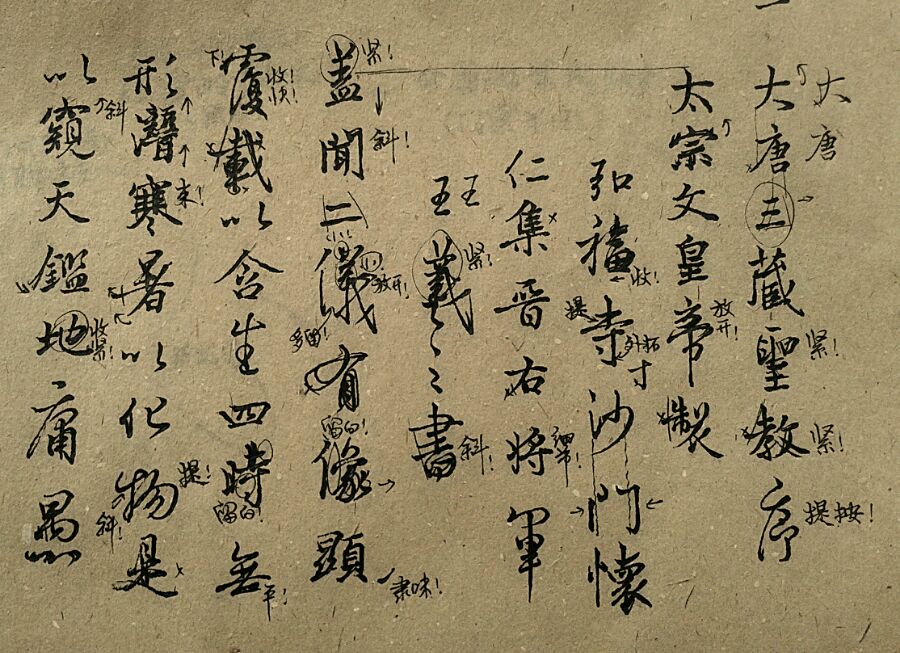 大唐
大唐三藏聖教序
緊!
紧!
提按!
太宗文皇帝製
放开!
弘福寺沙門懷
收!
提
外拓
寸
仁集晋右将軍
王羲之書
王
紧!
斜!
盖聞二儀有像顯
紧!
斜!
放开!
多留!
留白!
隶味!
覆載以含生四時無
下!
收!
快!
留白!
平!
形潛寒暑以化物是
来!
提!
以窺天鑑地庸愚
斜
收
紧!
斜!